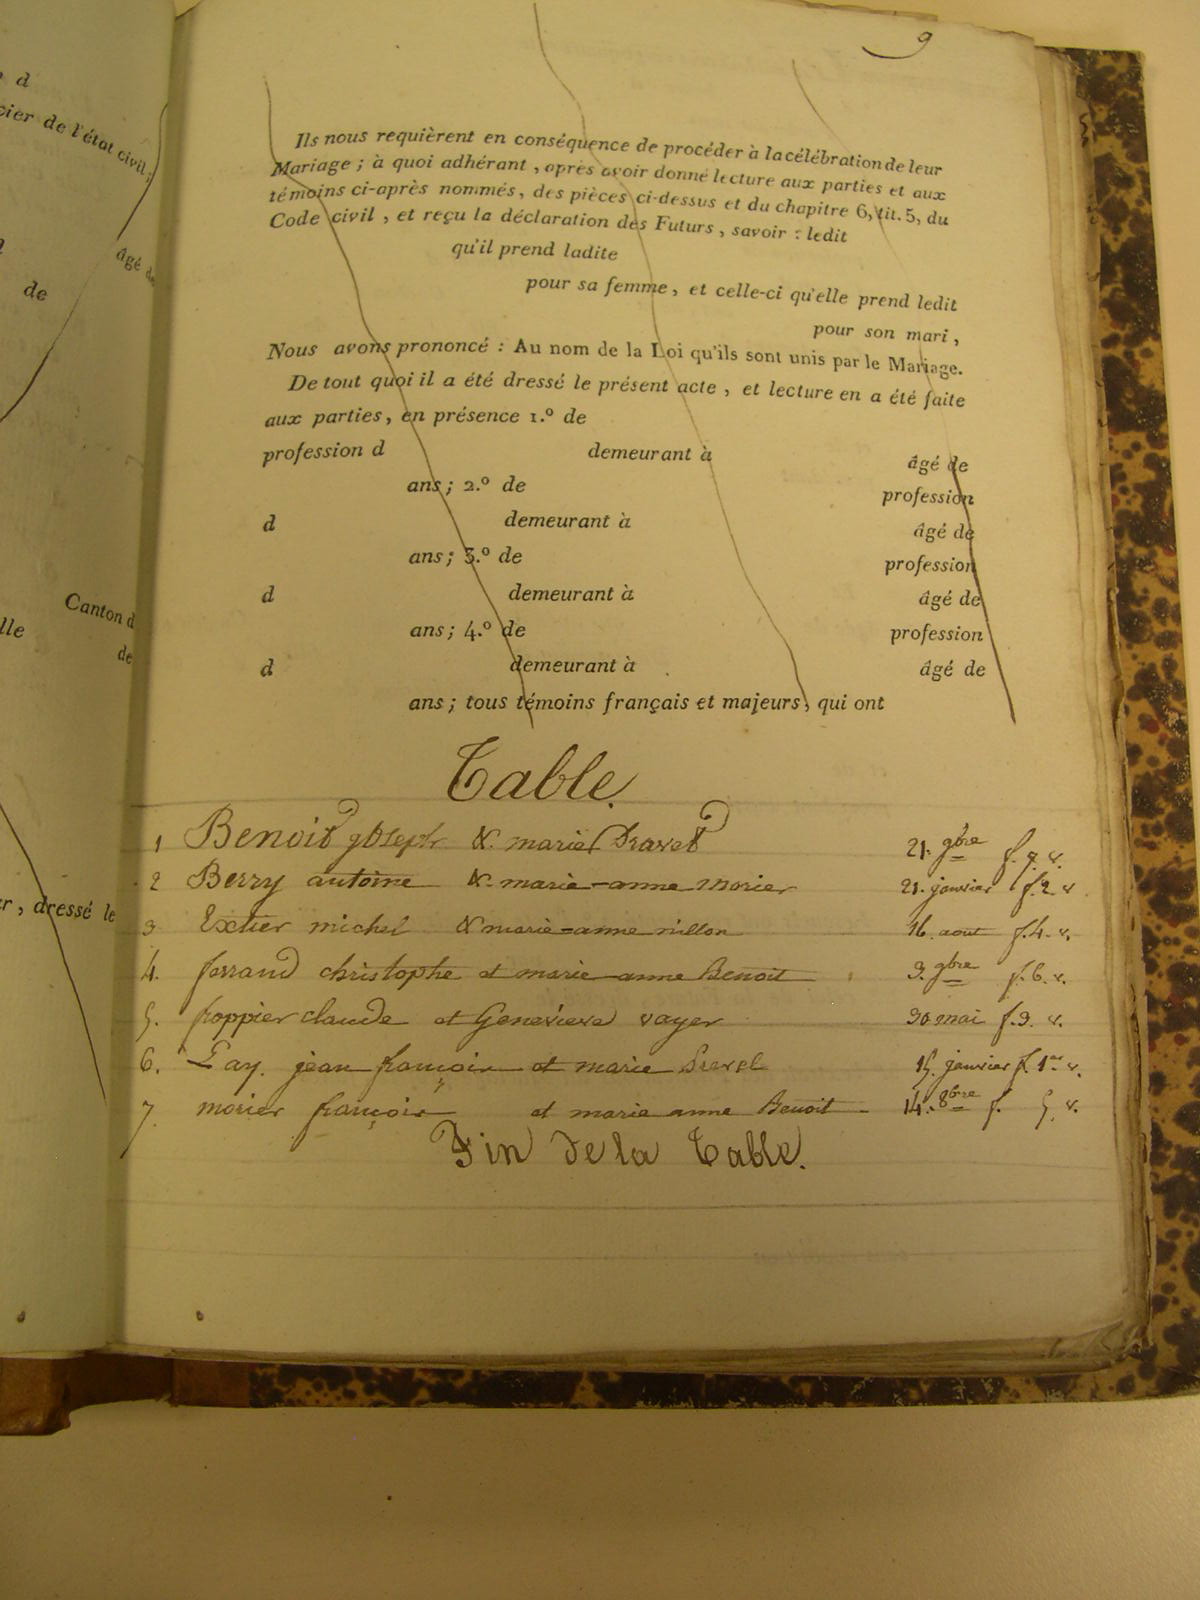 9
d
cier de l'état civil;
âgé de
de
Canton d
lle
de
er, dressé le
Ils nous requièrent en conséquence de procéder à la célébration de leur
Mariage ; à quoi adhérant , après avoir donné lecture aux parties et aux
témoins ci-après nommés, des pièces ci-dessus et du chapitre 6, tit. 5, du
Code civil , et reçu la déclaration des Futurs , savoir : ledit
qu'il prend ladite
pour sa femme, et celle-ci qu'elle prend ledit
pour son mari ,
Nous avons prononcé : Au nom de la Loi qu'ils sont unis par le Mariage.
De tout quoi il a été dressé le présent acte , et lecture en a été faite
aux parties, en présence 1.º de
profession d demeurant à âgé de
ans ; 2.º de profession
d demeurant à âgé de
ans ; 3.º de profession
d demeurant à âgé de
ans ; 4.º de profession
d demeurant à âgé de
ans ; tous témoins français et majeurs, qui ont
Table.
1 Benoit joseph & marie Dravet 21. 9bre f. 7. v.
2 Berry antoine & marie-anne morier 21. janvier f. 2 v
3 Extier michel & marie-anne millon 16. aout f. 4. v.
4. ferrand christophe et marie anne Benoit 3. 9bre f. 6. v.
5. froppier claude et Genevieve vayer 30 mai f. 3. v.
6. Lay. jean françois et marie 15. janvier f. 1er v.
7. morier françois et marie anne Benoit 14. 8bre f. 5. v.
Fin de la Table.